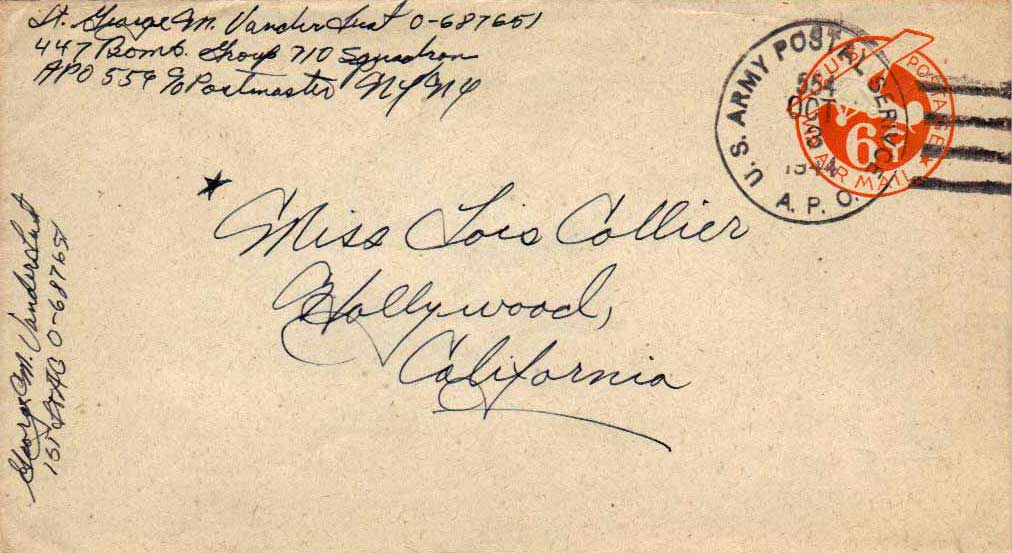 Lt. George M. VanderLust O-687651
447 Bomb. Group 710 Squadron
APO 559 c/o Postmaster NY NY
U. S. ARMY POSTAL SERVICE
A. P. O.
554
OCT
3
194
POSTAGE
6¢
AIR MAIL
Miss Lois Collier
Hollywood,
California
George M. VanderLust
1st Lt AC O-687651